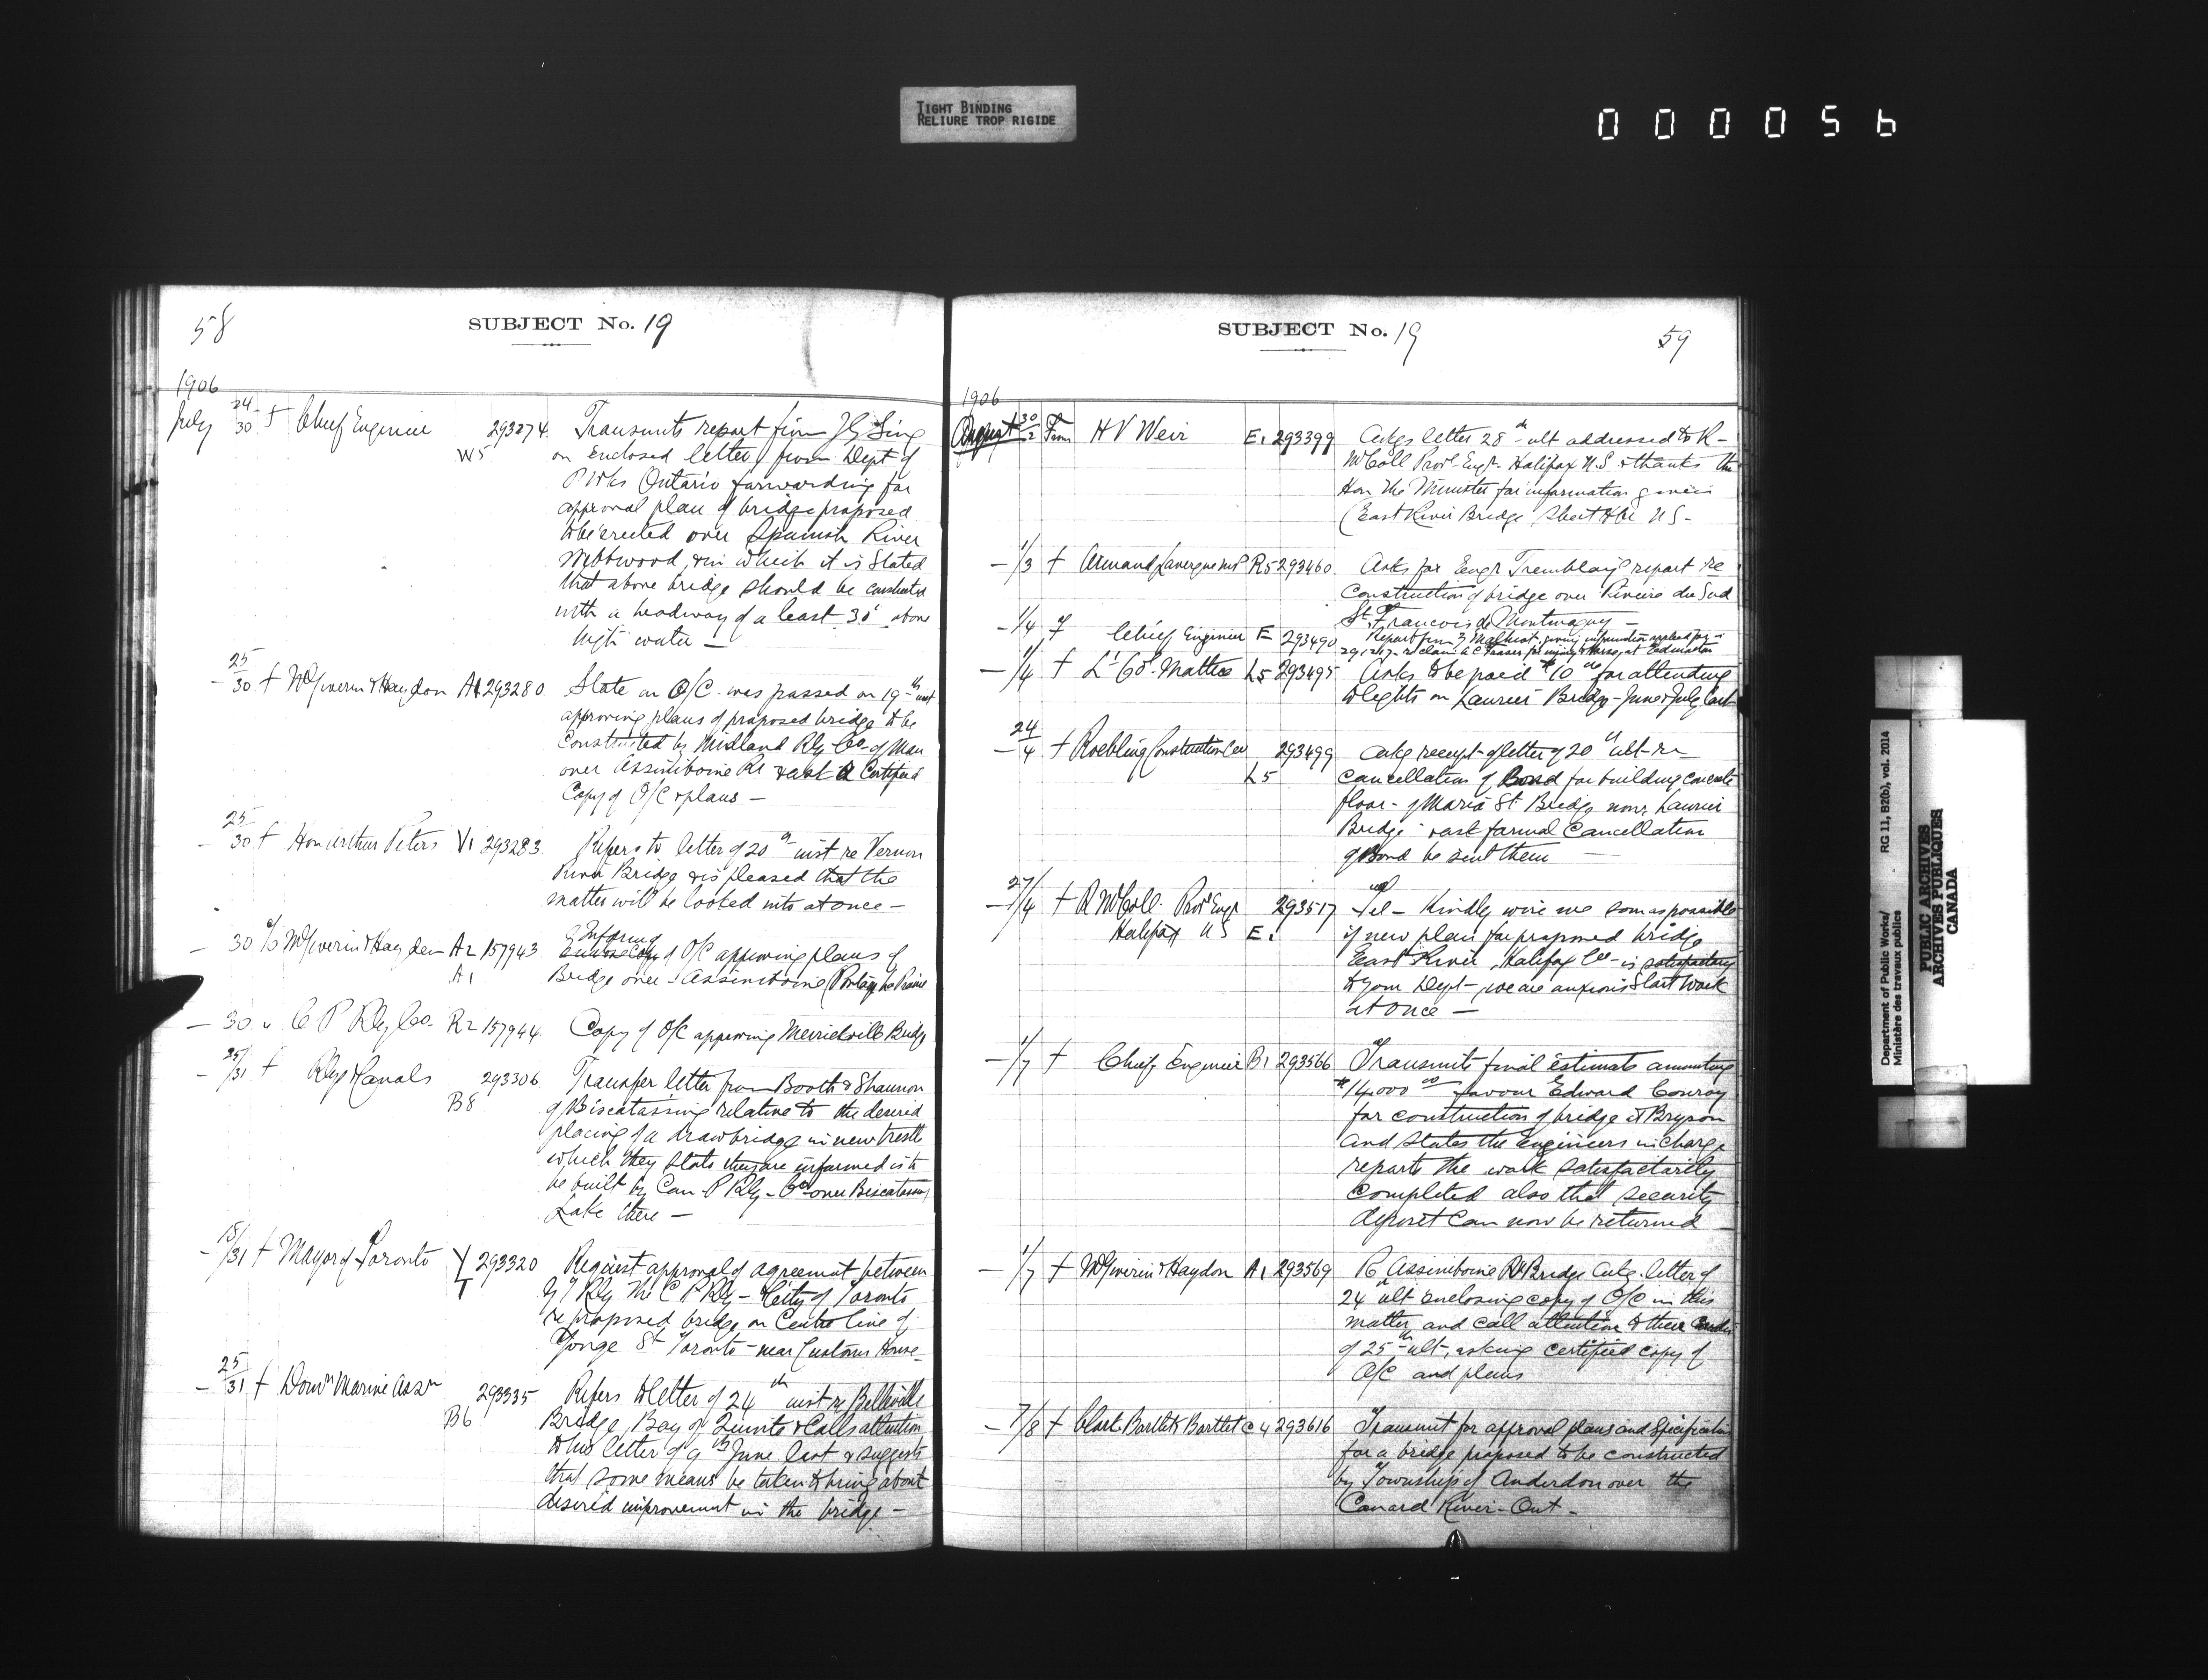 TIGHT BINDING
RELIURE TROP RIGIDE
000056
58
SUBJECT No. 19
1906
July 24/30 f Chief Engineer W5 293274 Transmits report from J G Sing
on enclosed letter from Dept of
P Wks Ontario forwarding for
approval plan of bridge proposed
to be erected over Spanish River
Webbwood, & in which it is stated
that above bridge should be constructed
with a headway of a least 30' above
high water —
— 25/30 f McGiverin & Haydon A1 293280 State an O/C was passed on 19th inst
approving plans of proposed bridge to be
constructed by Midland Rly Co of Man
over Assiniboine Rr & ask Certified
Copy of O/C & plans —
— 25/30 f Hon Arthur Peters V1 293283 Refers to letter of 20th inst re Vernon
River Bridge & is pleased that the
matter will be looked into at once —
— 30 McGiverin & Haydon A2 A1 157943 Informs
Copy of O/C approving plans of
Bridge over Assiniboine (Portage la Prairie
— 30 " C P Rly Co. R2 157944 Copy of O/C approving Merrickville Bridge
— 25/31 f Rlys & Canals B8 293306 Transfer letter from Booth & Shannon
of Biscatassing relative to the desired
placing of a drawbridge in new trestle
which they state they are informed is to
be built by Can. P Rly - Co over Biscatassing
Lake there —
— 18/31 f Mayor of Toronto Y T 293320 Request approval of agreement between
G T Rly the C P Rly — & City of Toronto
re proposed bridge on Centre line of
Yonge St Toronto — near Customs House —
— 25/31 f Domn Marine Assn B6 293335 Refers to letter of 24th inst re Belleville
Bridge, Bay of Quinte & Calls attention
to his letter of 9th June last & suggests
that some means be taken to bring about
desired improvement in the bridge —
SUBJECT No. 19
59
1906
August 30/2 From H V Weir E1 293399 Ackgs letter 28th ult addressed to R
McColl Provl Engr. Halifax N.S & thanks the
Hon the Minister for information given
(East River Bridge Sheet Hbr N S —
— 1/3 f Armand Lavergne MP R5 293460 Asks for Engr Tremblay's report re
Construction of bridge over Riviere du Sud
St. Francois de Montmagny —
— 1/4 f Chief Engineer E 293490 Report from giving information applied for in
re claim A C Fraser for injury to horse, at Edmonton
— 1/4 f Lt Col. Mattice L5 293495 Asks to be paid $10 00 for attending
to lights on Laurier Bridge — June & July last
— 24/4 f Roebling Construction Co L5 293499 Ackg receipt of letter of 20th ult re
cancellation of Bond for building concrete
floor — of Maria St Bridge now, Laurier
Bridge & ask formal Cancellation
of Bond be sent them —
— 27/4 f R McColl Prov Engr E1 293517 Tel — Kindly wire me soon as possible
Halifax N S if new plan for proposed bridge
East River, Halifax Co — is satisfactory
to your Dept — we are anxious start work
at once —
— 1/7 f Chief Engineer B1 293566 Transmits final estimate amounting
$14,000 00 favour Edward Conroy
for construction of bridge at Bryson
and states the engineers in charge
reports the work satisfactorily
completed also that security
deposit can now be returned —
— 1/7 f McGiverin & Haydon A1 293569 Re Assiniboine Rr Bridge Ackg. letter of
24 ult enclosing copy of O/C in this
matter and call attention to their
of 25th ult, asking certified copy of
O/C and plans
— 7/8 f Clark Bartlet & Bartlet C4 293616 Transmit for approval plans and Specification
for a bridge proposed to be constructed
by Township of Anderdon over the
Canard River — Ont —
Department of Public Works/
Ministère des travaux publics
RG 11, B2(b), vol. 2014
PUBLIC ARCHIVES
ARCHIVES PUBLIQUES
CANADA